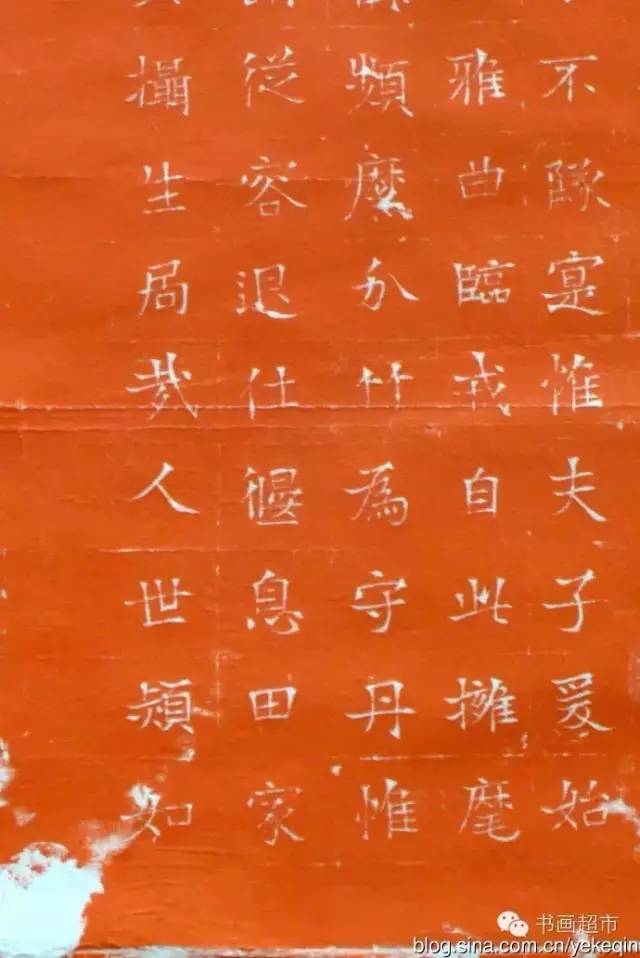 不隊寔惟夫子爰始
雅曲臨戎自此擁麾
頻麾分竹為守丹惟
從容退仕偃息田家
攝生局哉人世類如
书画超市
blog.sina.com.cn/yekeqin